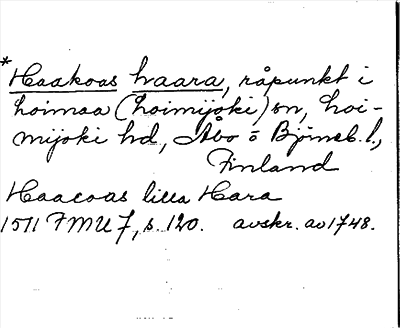 *Haakoas haara, råpunkt i
hoimaa (hoimijoki) sn, hoi-
mijoki hd, Åbo o Björneb. l.,
Finland
Haacoas lilla Hara
1511 FMU 7, s. 120. avskr. av 1748.